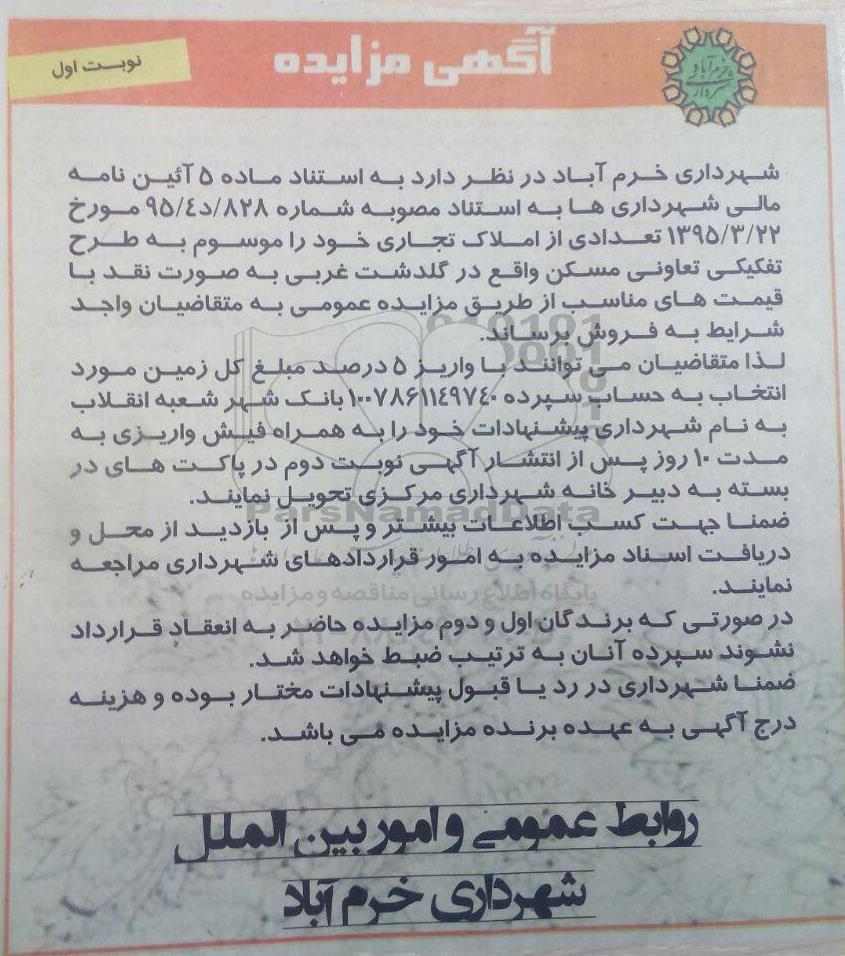 آگهی مزایده
نوبت اول
شهرداری خرم آباد
شهرداری خرم آباد در نظر دارد به استناد ماده ۵ آئین نامه
مالی شهرداری ها به استناد مصوبه شماره ۸۲۸/د/۹۵/٤ مورخ
۱۳۹۵/۳/۲۲ تعدادی از املاک تجاری خود را موسوم به طرح
تفکیکی تعاونی مسکن واقع در گلدشت غربی به صورت نقد با
قیمت های مناسب از طریق مزایده عمومی به متقاضیان واجد
شرایط به فروش برساند.
لذا متقاضیان می توانند با واریز ۵ درصد مبلغ کل زمین مورد
انتخاب به حساب سپرده ۱۰۰۷۸۶۱۱٤۹۷٤۰ بانک شهر شعبه انقلاب
به نام شهرداری پیشنهادات خود را به همراه فیش واریزی به
مدت ۱۰ روز پس از انتشار آگهی نوبت دوم در پاکت های در
بسته به دبیر خانه شهرداری مرکزی تحویل نمایند.
ParsNamadData
ضمنا جهت کسب اطلاعات بیشتر و پس از بازدید از محل و
دریافت اسناد مزایده به امور قراردادهای شهرداری مراجعه
نمایند.
پایگاه اطلاع رسانی مناقصه و مزایده
در صورتی که برندگان اول و دوم مزایده حاضر به انعقاد قرارداد
نشوند سپرده آنان به ترتیب ضبط خواهد شد.
ضمنا شهرداری در رد یا قبول پیشنهادات مختار بوده و هزینه
درج آگهی به عهده برنده مزایده می باشد.
روابط عمومی و امور بین الملل
شهرداری خرم آباد